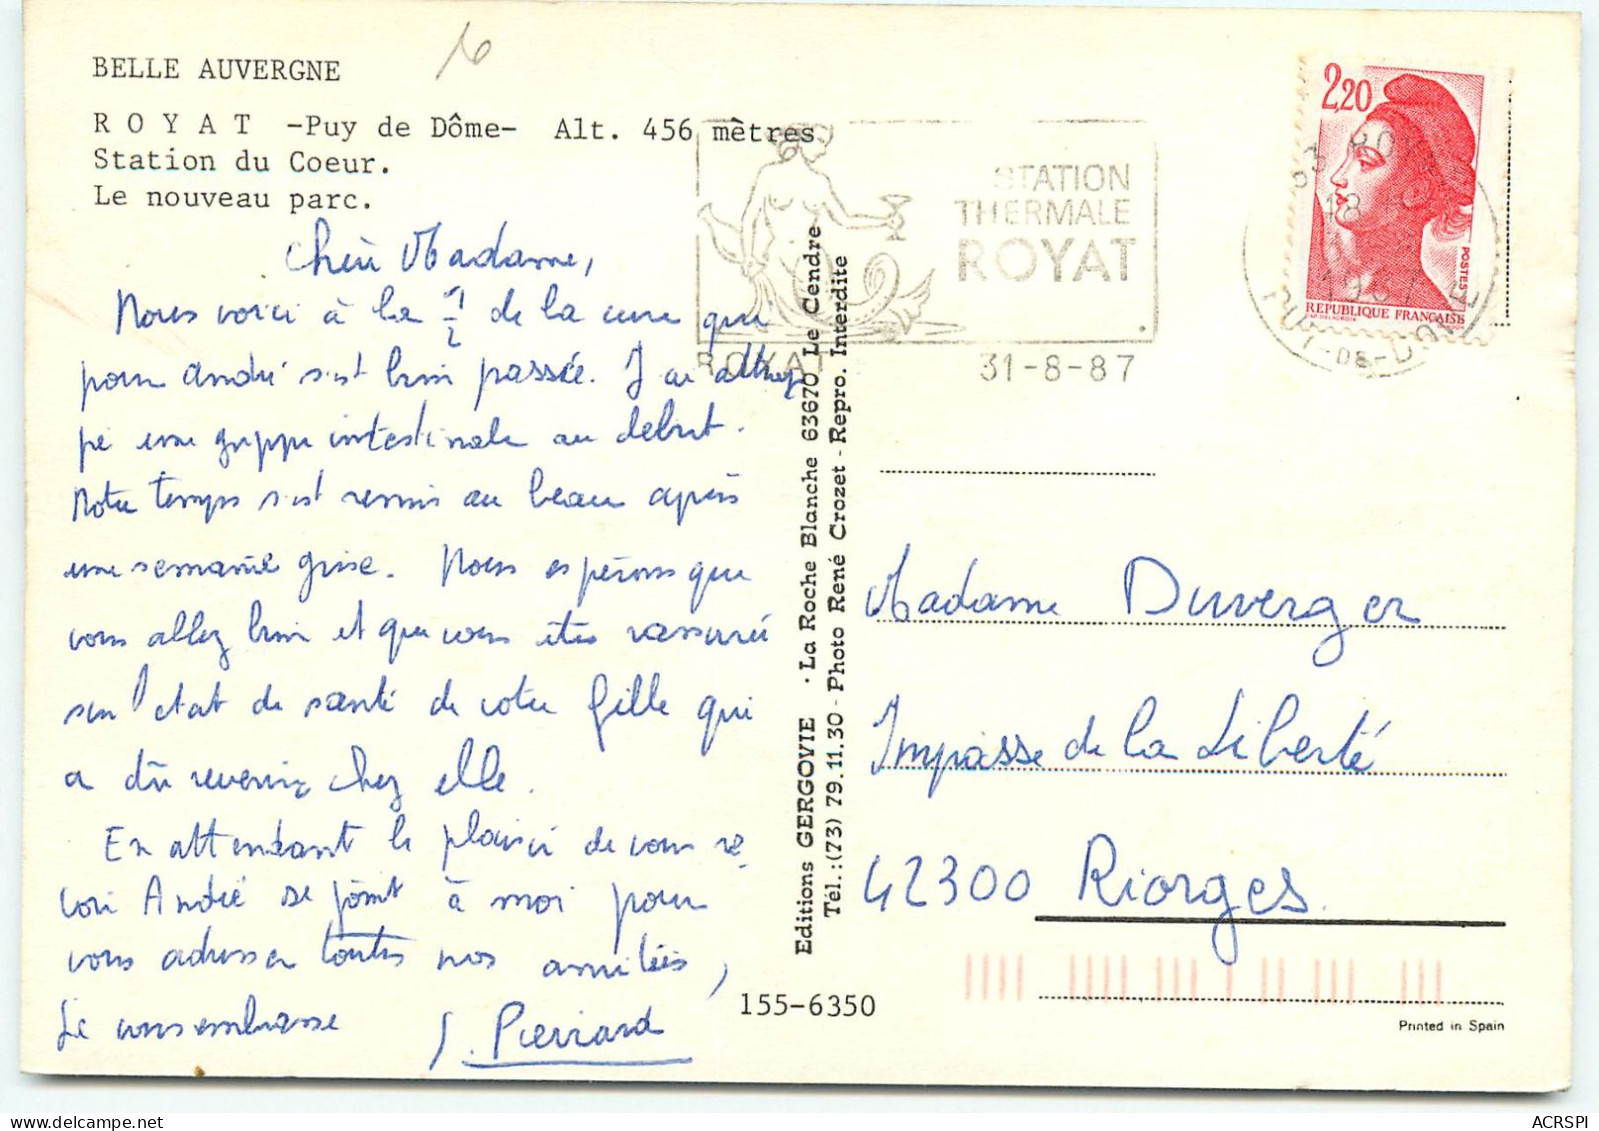 BELLE AUVERGNE
R O Y A T -Puy de Dôme- Alt. 456 mètres.
Station du Coeur.
Le nouveau parc.
Chère Madame,
Nous voici à la 1/2 de la cure qui
pour André s'est bien passée. J'ai attrap
pé une grippe intestinale au début.
Notre temps s'est remis au beau après
une semaine grise. Nous espérons que
vous allez bien et que vous êtes rassurée
sur l'état de santé de votre fille qui
a dû revenir chez elle.
En attendant le plaisir de vous re
voir André se joint à moi pour
vous adresser toutes nos amitiés,
Je vous embrasse
J. Pierrard
155-6350
Editions GERGOVIE · La Roche Blanche 63670 Le Cendre
Tél.:(73) 79.11.30 - Photo René Crozet - Repro. Interdite
STATION
THERMALE
ROYAT
ROYAT 31-8-87
2,20
POSTES
REPUBLIQUE FRANÇAISE
63 ROYAT
18 H
31
1987
PUY-DE-DOME
Madame Duverger
Impasse de la Liberté
42300 Riorges
Printed in Spain
ACRSPI